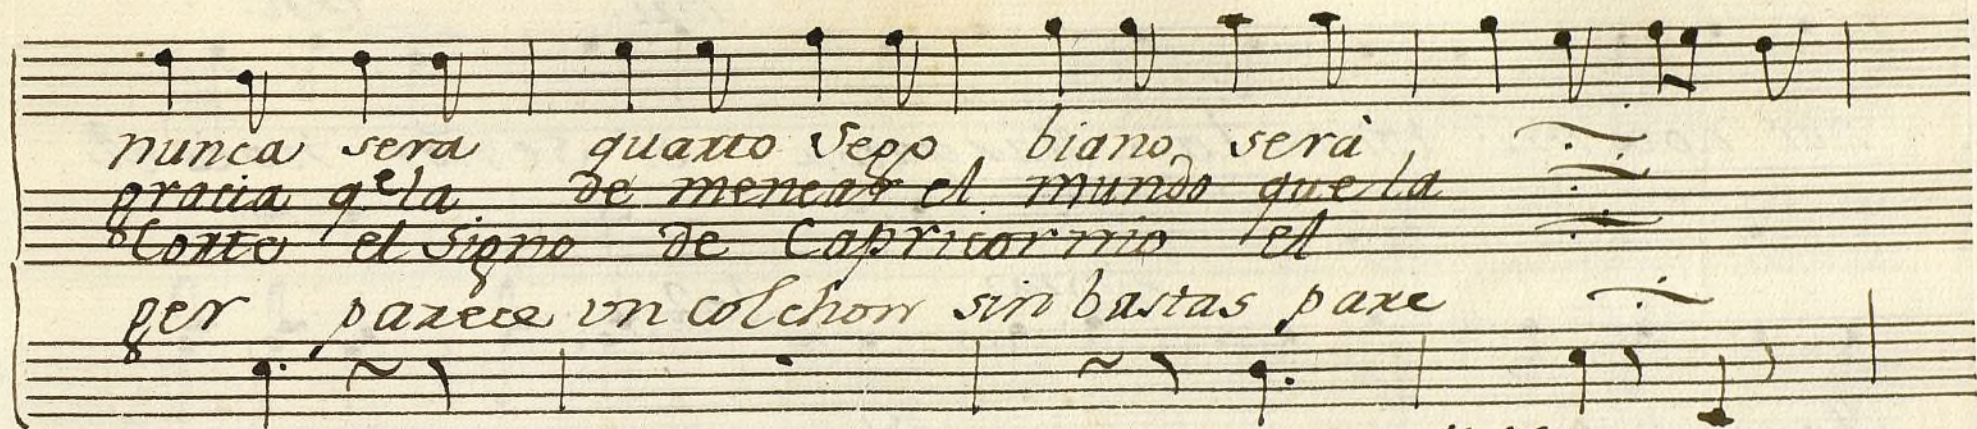 nunca sera quarto Sego biano, será
gracia qᵉ la de menear el mundo que la
Corte el Signo de Capricornio el
ger parece vn colchon sin bastas pare